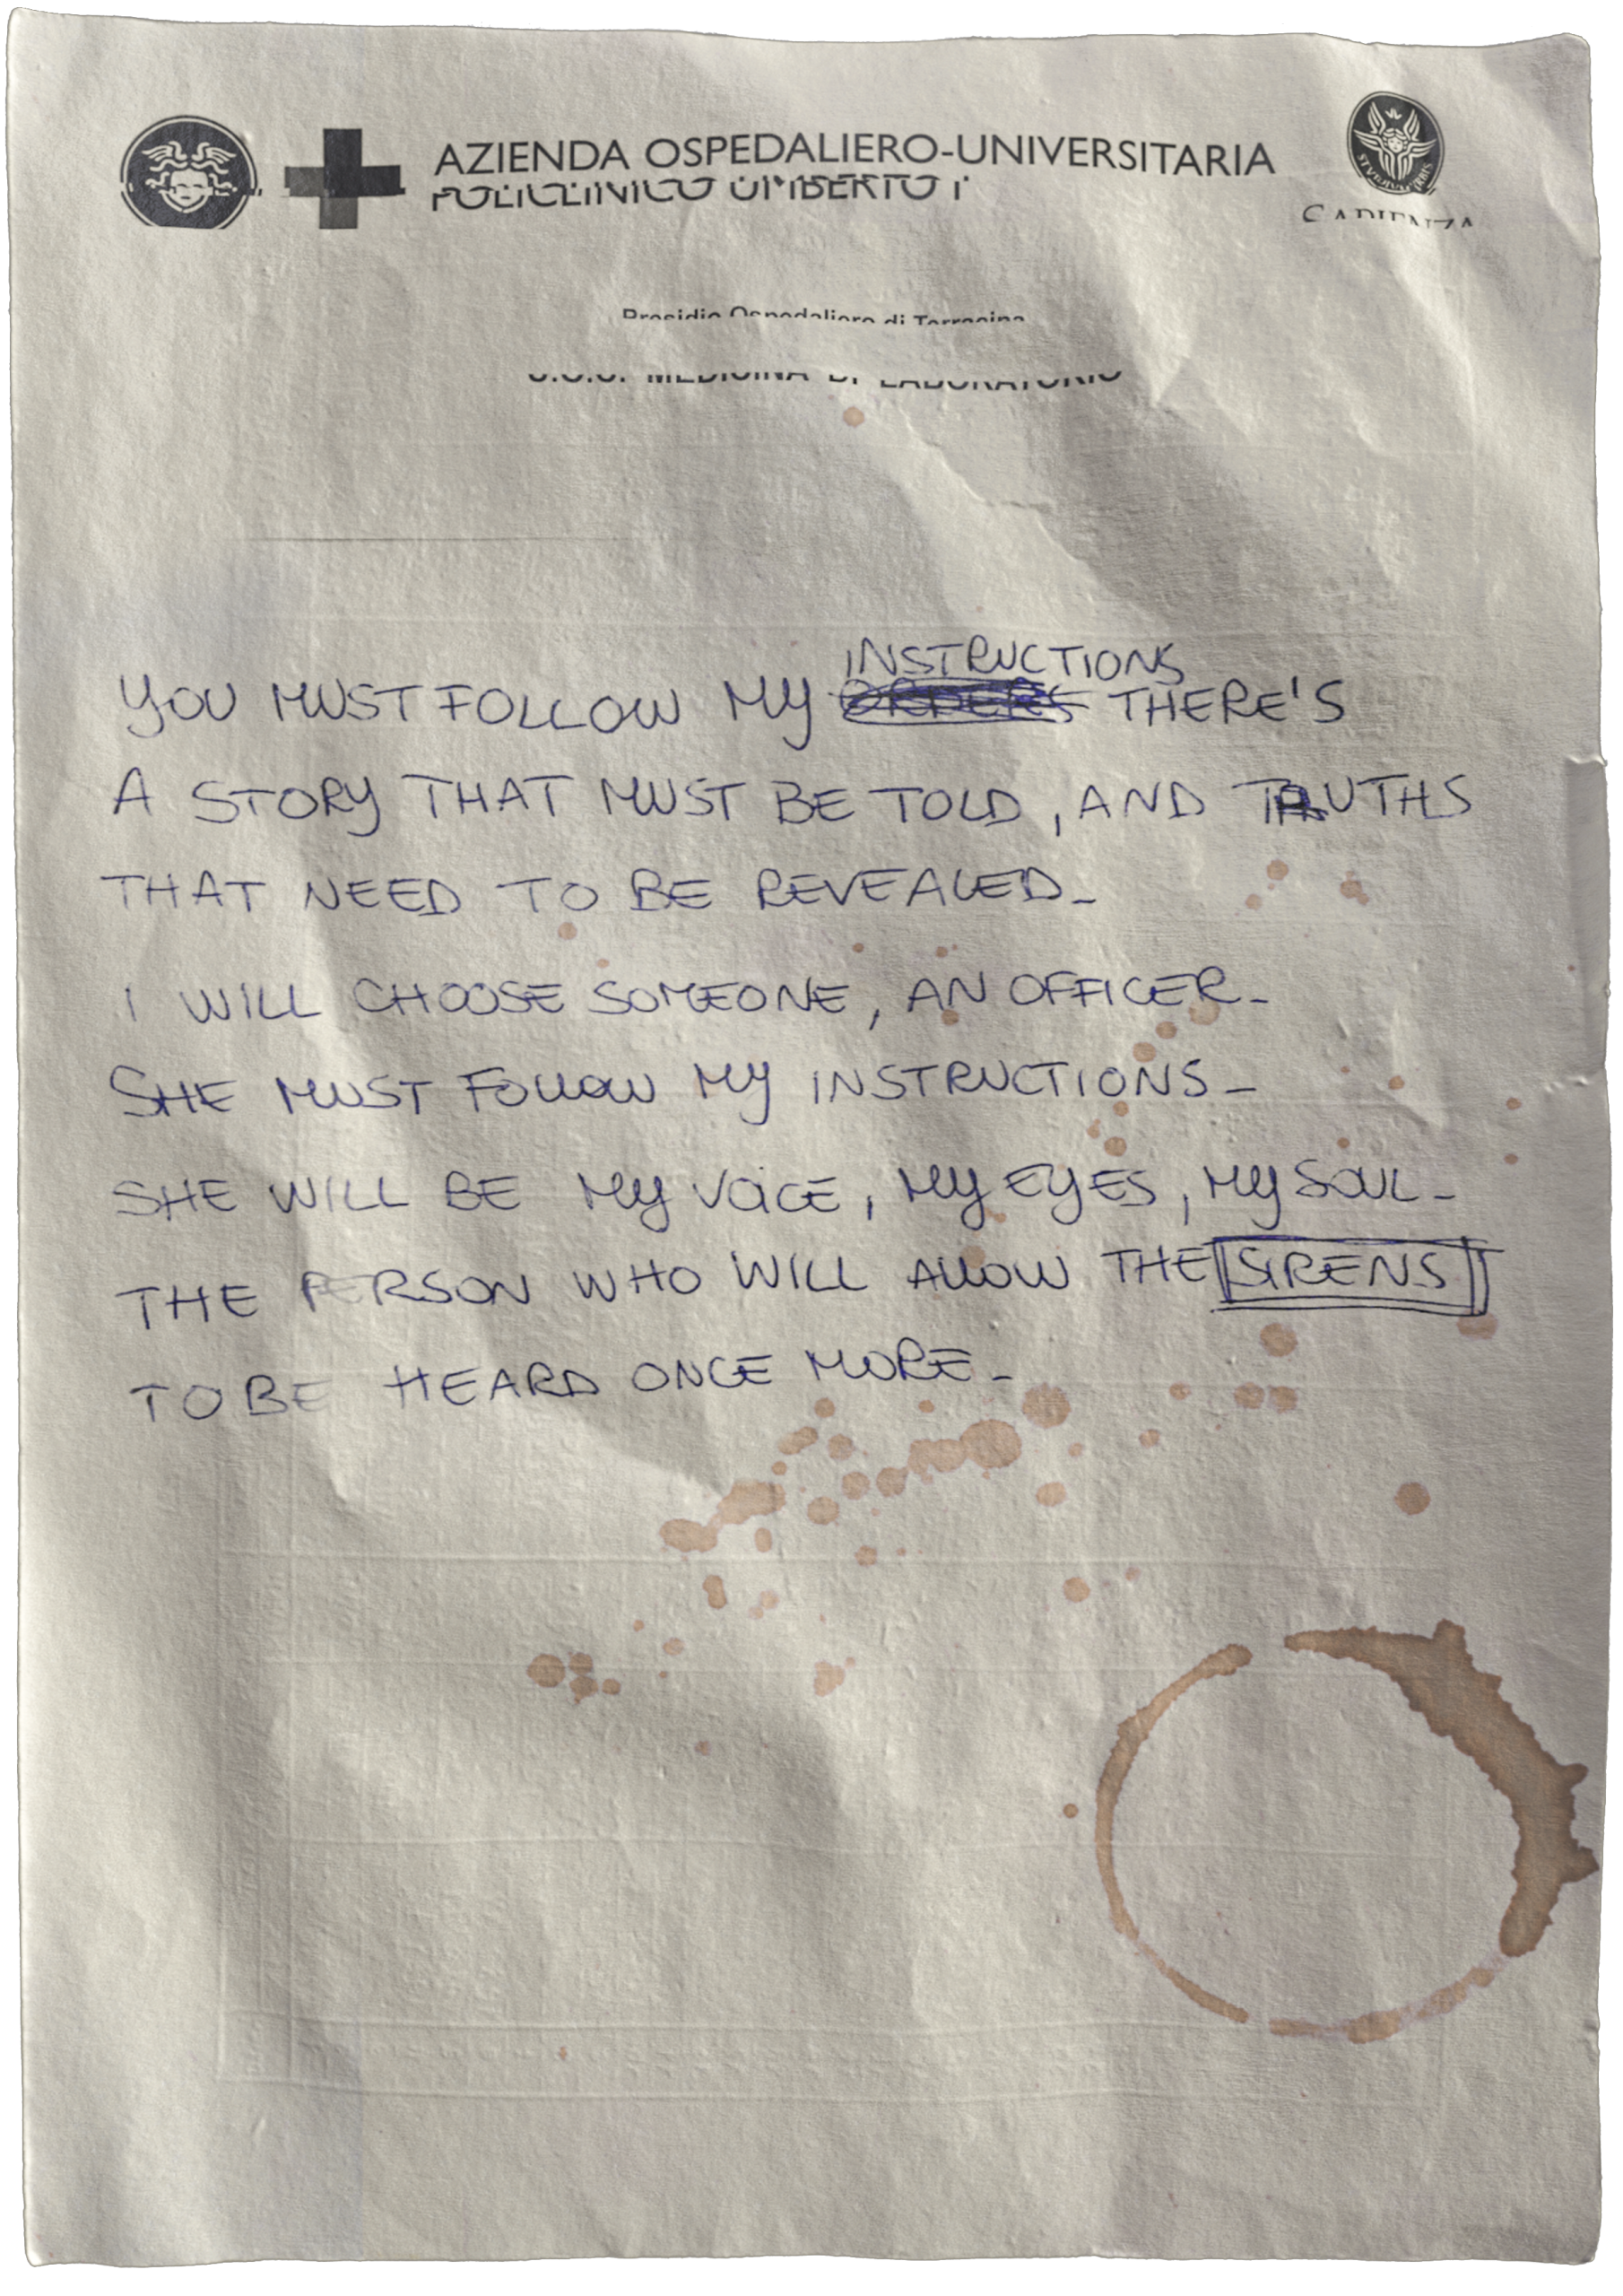 AZIENDA OSPEDALIERO-UNIVERSITARIA
POLICLINICO UMBERTO I
SAPIENZA
Presidio Ospedaliero di Terracina
MEDICINA DI LABORATORIO
INSTRUCTIONS
YOU MUST FOLLOW MY ORDERS THERE'S
A STORY THAT MUST BE TOLD, AND TRUTHS
THAT NEED TO BE REVEALED_
I WILL CHOOSE SOMEONE, AN OFFICER_
SHE MUST FOLLOW MY INSTRUCTIONS_
SHE WILL BE MY VOICE, MY EYES, MY SOUL_
THE PERSON WHO WILL ALLOW THE SIRENS
TO BE HEARD ONCE MORE_